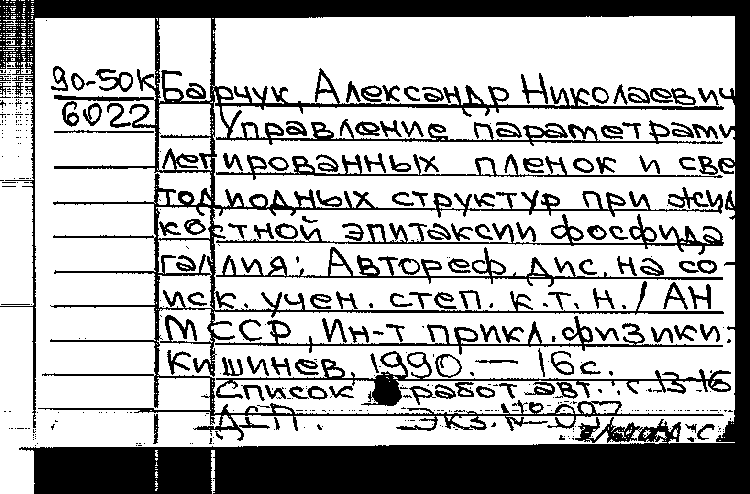 90-50К Барчук, Александр Николаевич
6022 Управление параметрами
легированных пленок и све
тодиодных структур при жид
костной эпитаксии фосфида
галлия: Автореф. дис. на со-
иск. учен. степ. к.т.н. / АН
МССР, Ин-т прикл. физики.
Кишинев, 1990. — 16 с.
Список работ авт.: с. 13-16
ДСП. Экз. № 097